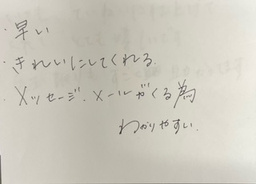 ・早い
・きれいにしてくれる.
・メッセージ、メールがくる為
わかりやすい.